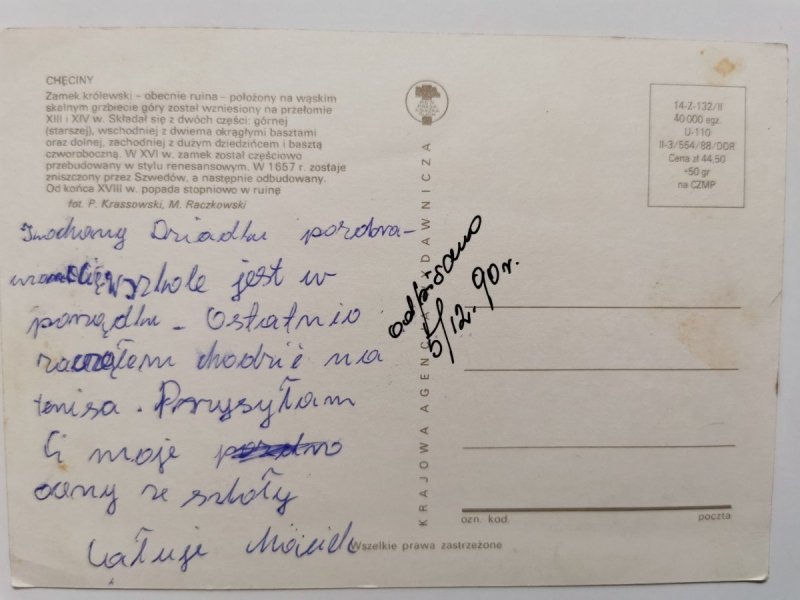 CHĘCINY
Zamek królewski – obecnie ruina – położony na wąskim
skalnym grzbiecie góry został wzniesiony na przełomie
XIII i XIV w. Składał się z dwóch części: górnej
(starszej), wschodniej z dwiema okrągłymi basztami
oraz dolnej, zachodniej z dużym dziedzińcem i basztą
czworoboczną. W XVI w. zamek został częściowo
przebudowany w stylu renesansowym. W 1657 r. zostaje
zniszczony przez Szwedów, a następnie odbudowany.
Od końca XVIII w. popada stopniowo w ruinę
fot. P. Krassowski, M. Raczkowski
Kochany Dziadku pozdra-
w szkole jest w
porządku. Ostatnio
zacząłem chodzić na
tenisa. Przysyłam
Ci moje
oceny ze szkoły
Całuję Maciek
KRAJOWA AGENCJA WYDAWNICZA
odpisano
5/12.90r.
14-Z-132/II
40 000 egz.
U-110
II-3/554/88/DDR
Cena zł 44,50
+50 gr
na CZMP
ozn. kod. poczta
Wszelkie prawa zastrzeżone